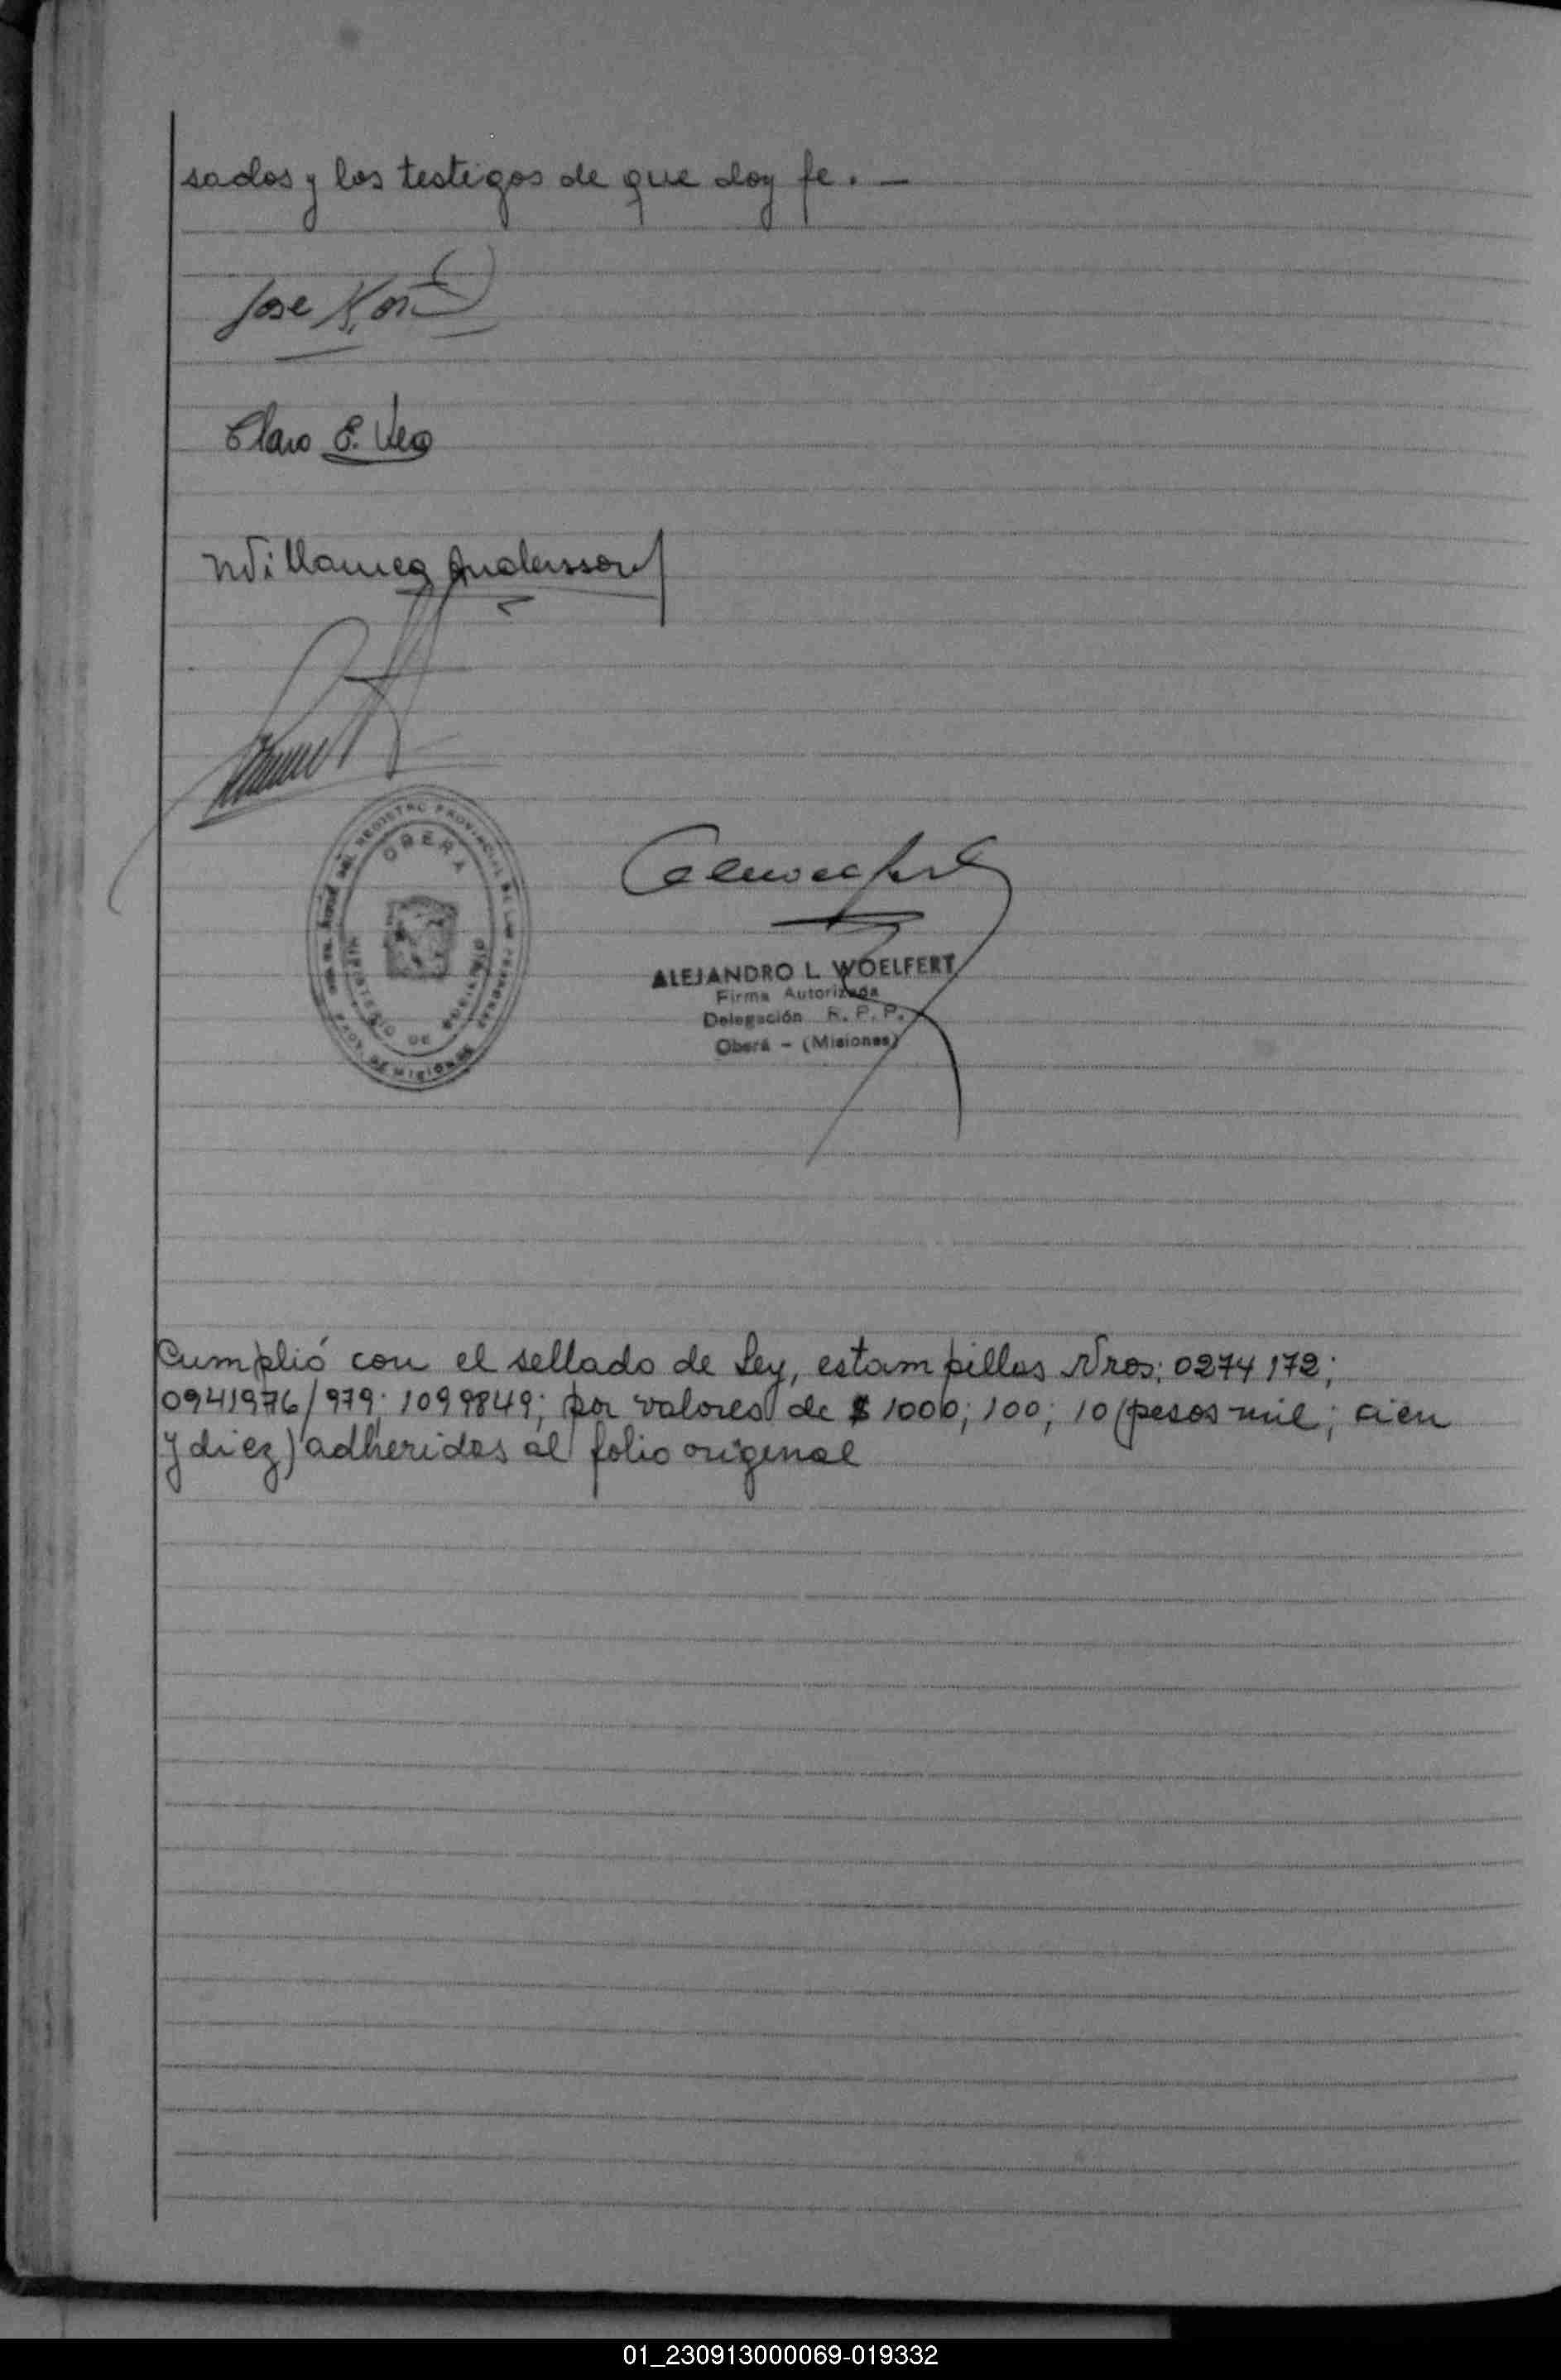 sados y los testigos de que doy fe. —
Jose
Claro E. Vera
Andersson
OBERA
MINISTERIO DE GOBIERNO
PROV. DE MISIONES
ALEJANDRO L. WOELFERT
Firma Autorizada
Delegación R. P. P.
Oberá - (Misiones)
Cumplió con el sellado de Ley, estampillas Nros; 0274172;
0941976/979; 1099849; por valores de $ 1000; 100; 10 (pesos mil; cien
y diez) adheridas al folio original
01_230913000069-019332